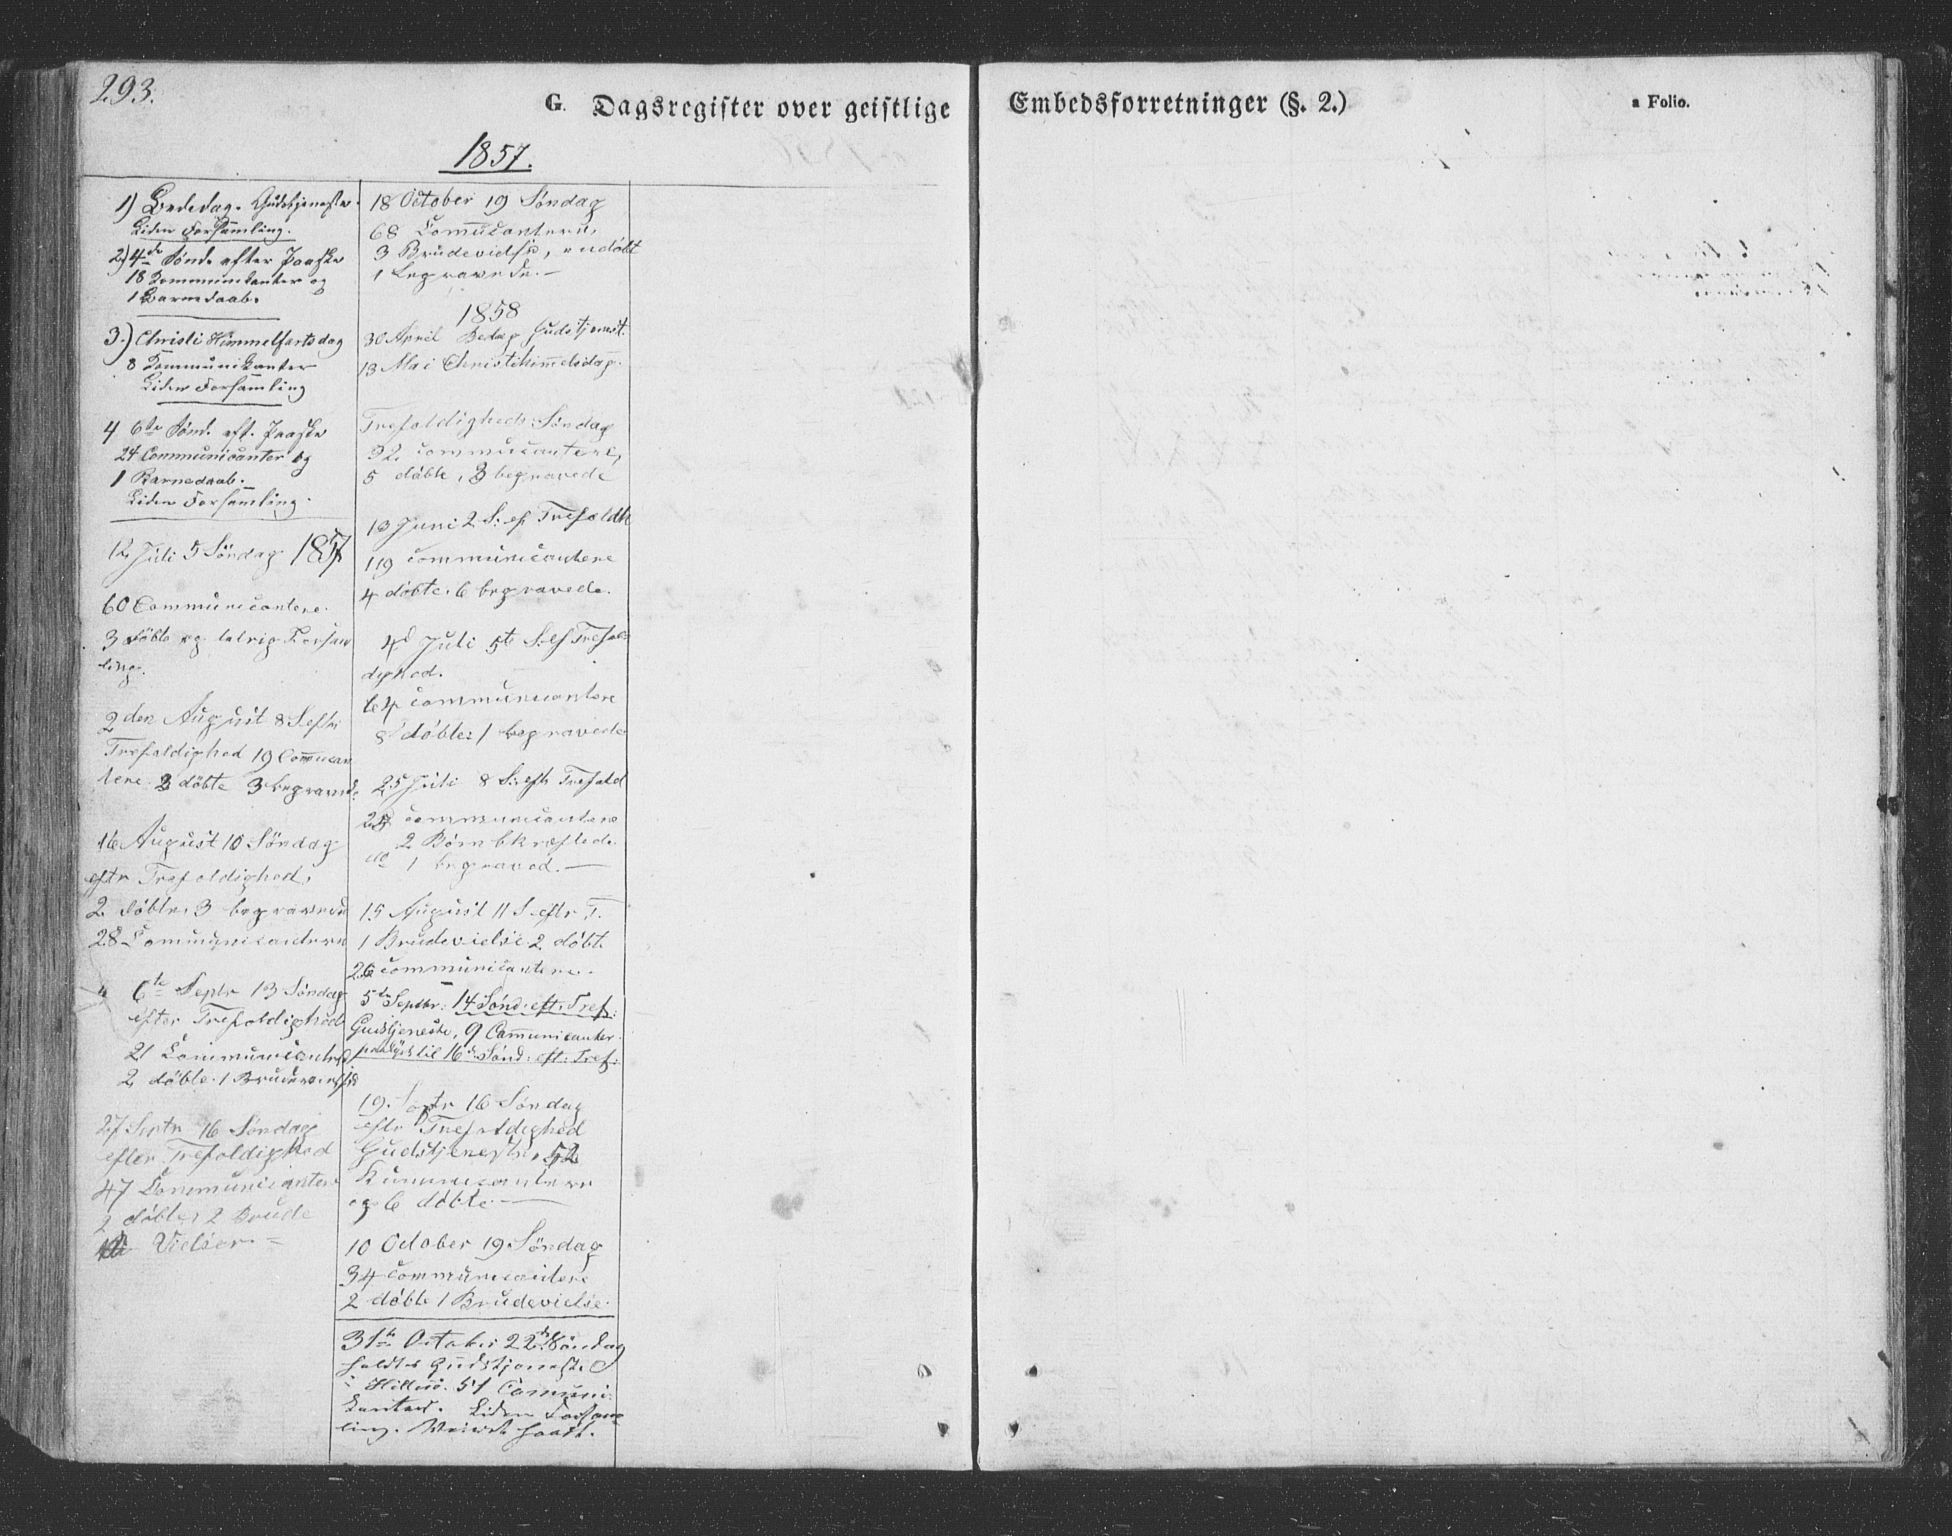 293.
G. Dagsregister over geistlige Embedsforretninger (§. 2.)
a Folio.
1857.
1) Bededag. Gudstjeneste.
Liden Forsamling.
2) 4de Sønd. efter Paaske
18 Kommunikanter og
1 Barnedaab.
3.) Christi Himmelfartsdag
8 Kommunikanter
Liden Forsamling
4 6te Sønd. eft. Paaske
24 Communicanter og
1 Barnedaab.
Liden Forsamling.
12 Juli 5 Søndag 1857
60 Communicantere.
3 døbte og talrig Forsam
ling.
2den August 8 S. eftr
Trefoldighed 19 Com̅ucan
tere. 3 døbte 3 begravede
16 August 10 Søndag
eftr Trefoldighed,
2 døbte, 3 begravede
28 Communicantere
6te Septr 13 Søndag
efter Trefoldighed
21 Communicantere
2 døbte. 1 Brudevielse
27 Septr 16 Søndag
efter Trefoldighed
47 Communicantere
2 døbte, 2 Brude
Vielser.
18 October 19 Søndag
68 Com̅ucantere,
3 Brudevidse, døbt
1 begravede.
1858
30 April Bedag Gudstjenest.
13 Mai Christihim̅elsdag.
Trefoldigheds Søndag
32 communicantere,
5 døbte, 3 begravede
13 Juni 2 S. ef Trefoldh
119 communicantere
4 døbte. 6 begravede.
4d Juli 5te S. ef Trefol
dighed.
64 communicantere
8 døbte: 1 begravede
25 Juli 8 S. eft Trefold
communicantere
2 Børn bkræftede
1 begraved.
15 August 11 S. eftr T.
1 Brudevielse 2 døbt
26 communicantere.
5te Septbr: 14 Sønd. eft. Tref:
Gudstjeneste, 9 Com̅unicanter.
til 16de Sønd: eft: Tref:
19. Septr 16 Søndag
eftr Trefoldighed
Gudstjeneste, 52
Kummucantere
og 6 døbte.
10 October 19 Søndag
34 communicantere
2 døbte 1 Brudevielse.
31te October 22de Søndag
holdtes Gudstjeneste
i Hillesø. 51 Comuni-
kanter. Liden Forsam
ling. Veiret haardt.